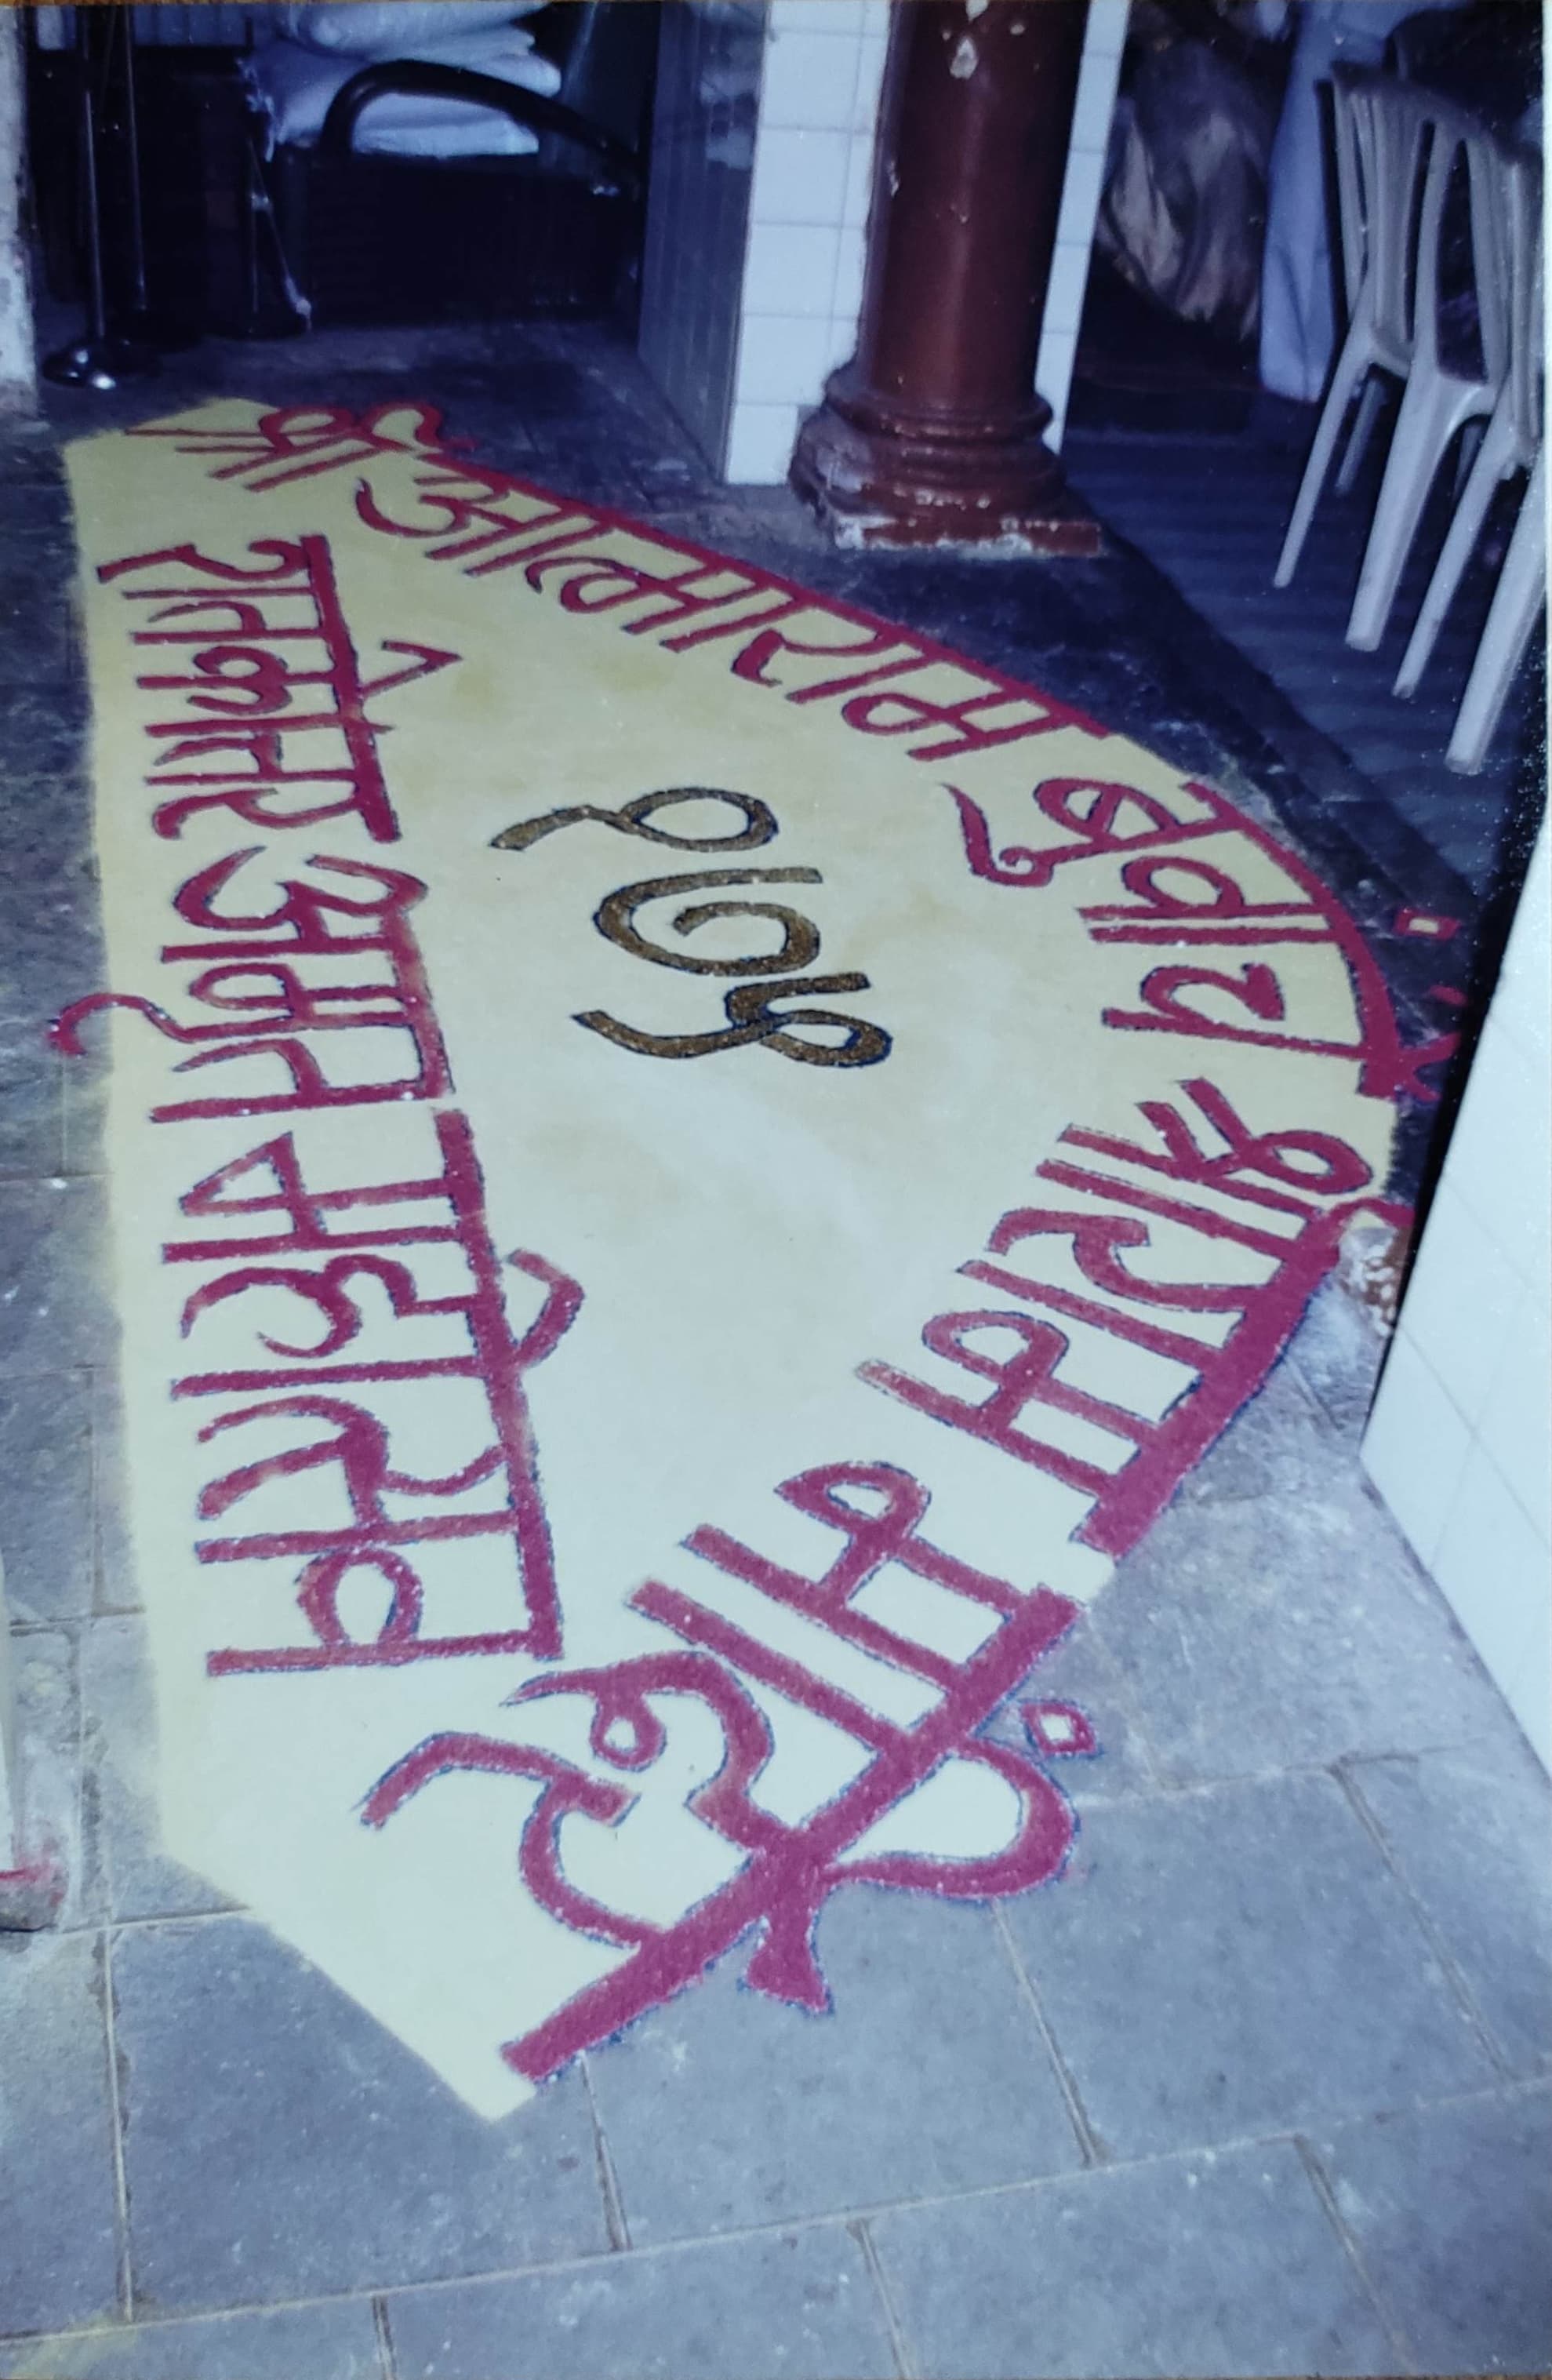 श्री आत्माराम बुवांचे श्रीराम मंदिर
१७५
शतकोत्तर अमृत महोत्सव